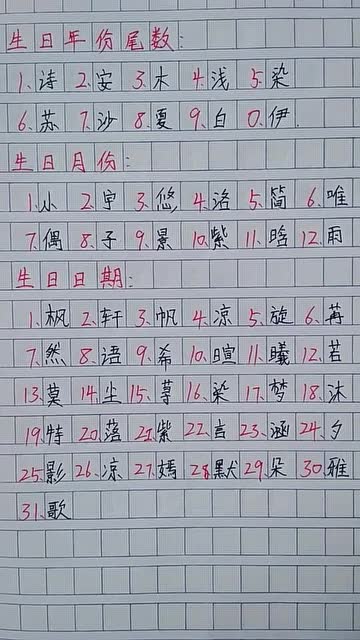 生日年份尾数:
1、诗 2、安 3、木 4、浅 5、染
6、苏 7、沙 8、夏 9、白 0、伊
生日月份:
1、小 2、宇 3、悠 4、洛 5、简 6、唯
7、偶 8、子 9、景 10、紫 11、晗 12、雨
生日日期:
1、枫 2、轩 3、帆 4、凉 5、旋 6、苒
7、然 8、语 9、希 10、暄 11、曦 12、若
13、莫 14、尘 15、荨 16、染 17、梦 18、沐
19、特 20、落 21、紫 22、言 23、涵 24、夕
25、影 26、凉 27、嫣 28、默 29、朵 30、雅
31、歌